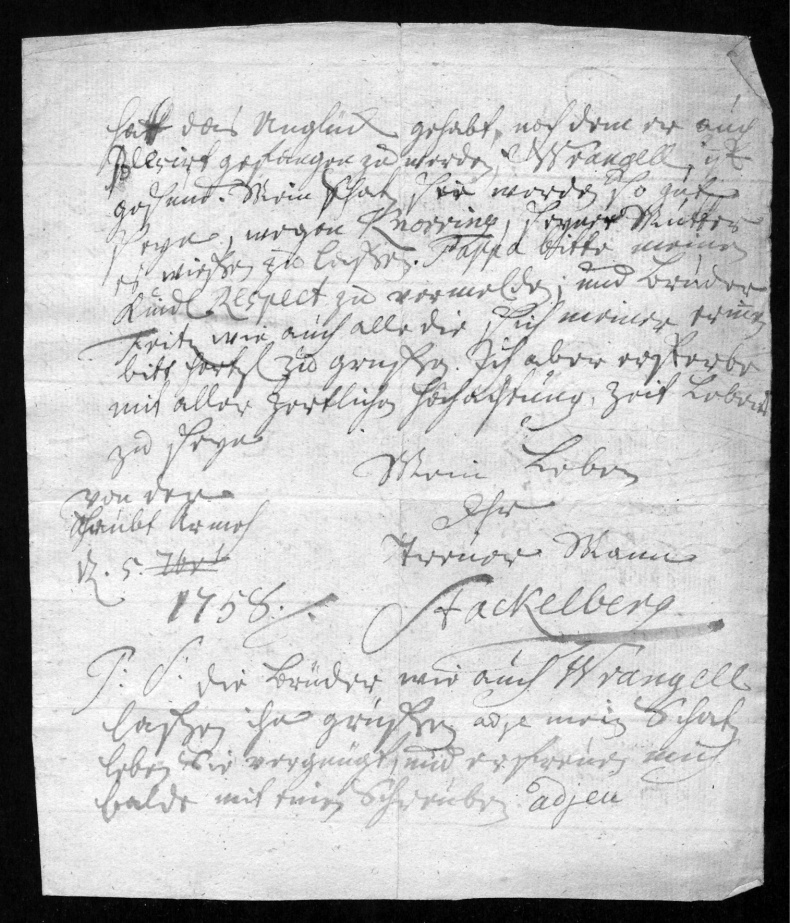 hatt das Unglück gehabt, nach dem er auch
Plesirt gefangen zu werden, Wrangell ist
gesund. Mein Schatz Sie werden so gut
seyn, wegen Knorring, seyner Mutter
es wissen zu lassen. Pappa bitte meinen
Kindl. Respect zu vermelden, und Brüder
Fritz wie auch alle die sich meiner erinnern
bitt hertzl. zu grüssen. Ich aber ersterbe
mit aller Zertlichen Hochachtung, Zeit Lebens
zu seyn
Mein Leben
von der
Ihr
Haubt Armeh
Treuer Mann
d. 5. 7bris
1758.
Stackelberg
P. S. die Brüder wie auch Wrangell
lassen ihn grüssen adje mein Schatz
leben Sie vergnügt, und erfreuen mich
balde mit einen Schreiben adjeu